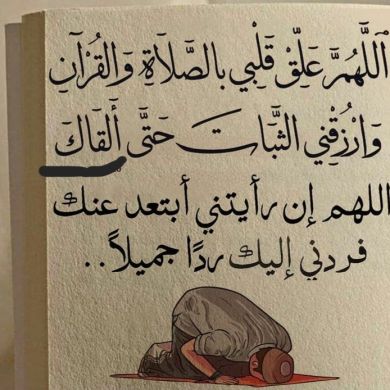 اَللَّهُمَّ عَلِّقْ قَلْبِي بالصَّلَاةِ وَالقُرْآنِ
وَارْزُقْنِي الثَّبَاتَ حَتَّى أَلقَاكَ
اللهم إن رأيتني أبتعد عنك
فردني إليك ردًا جميلاً..